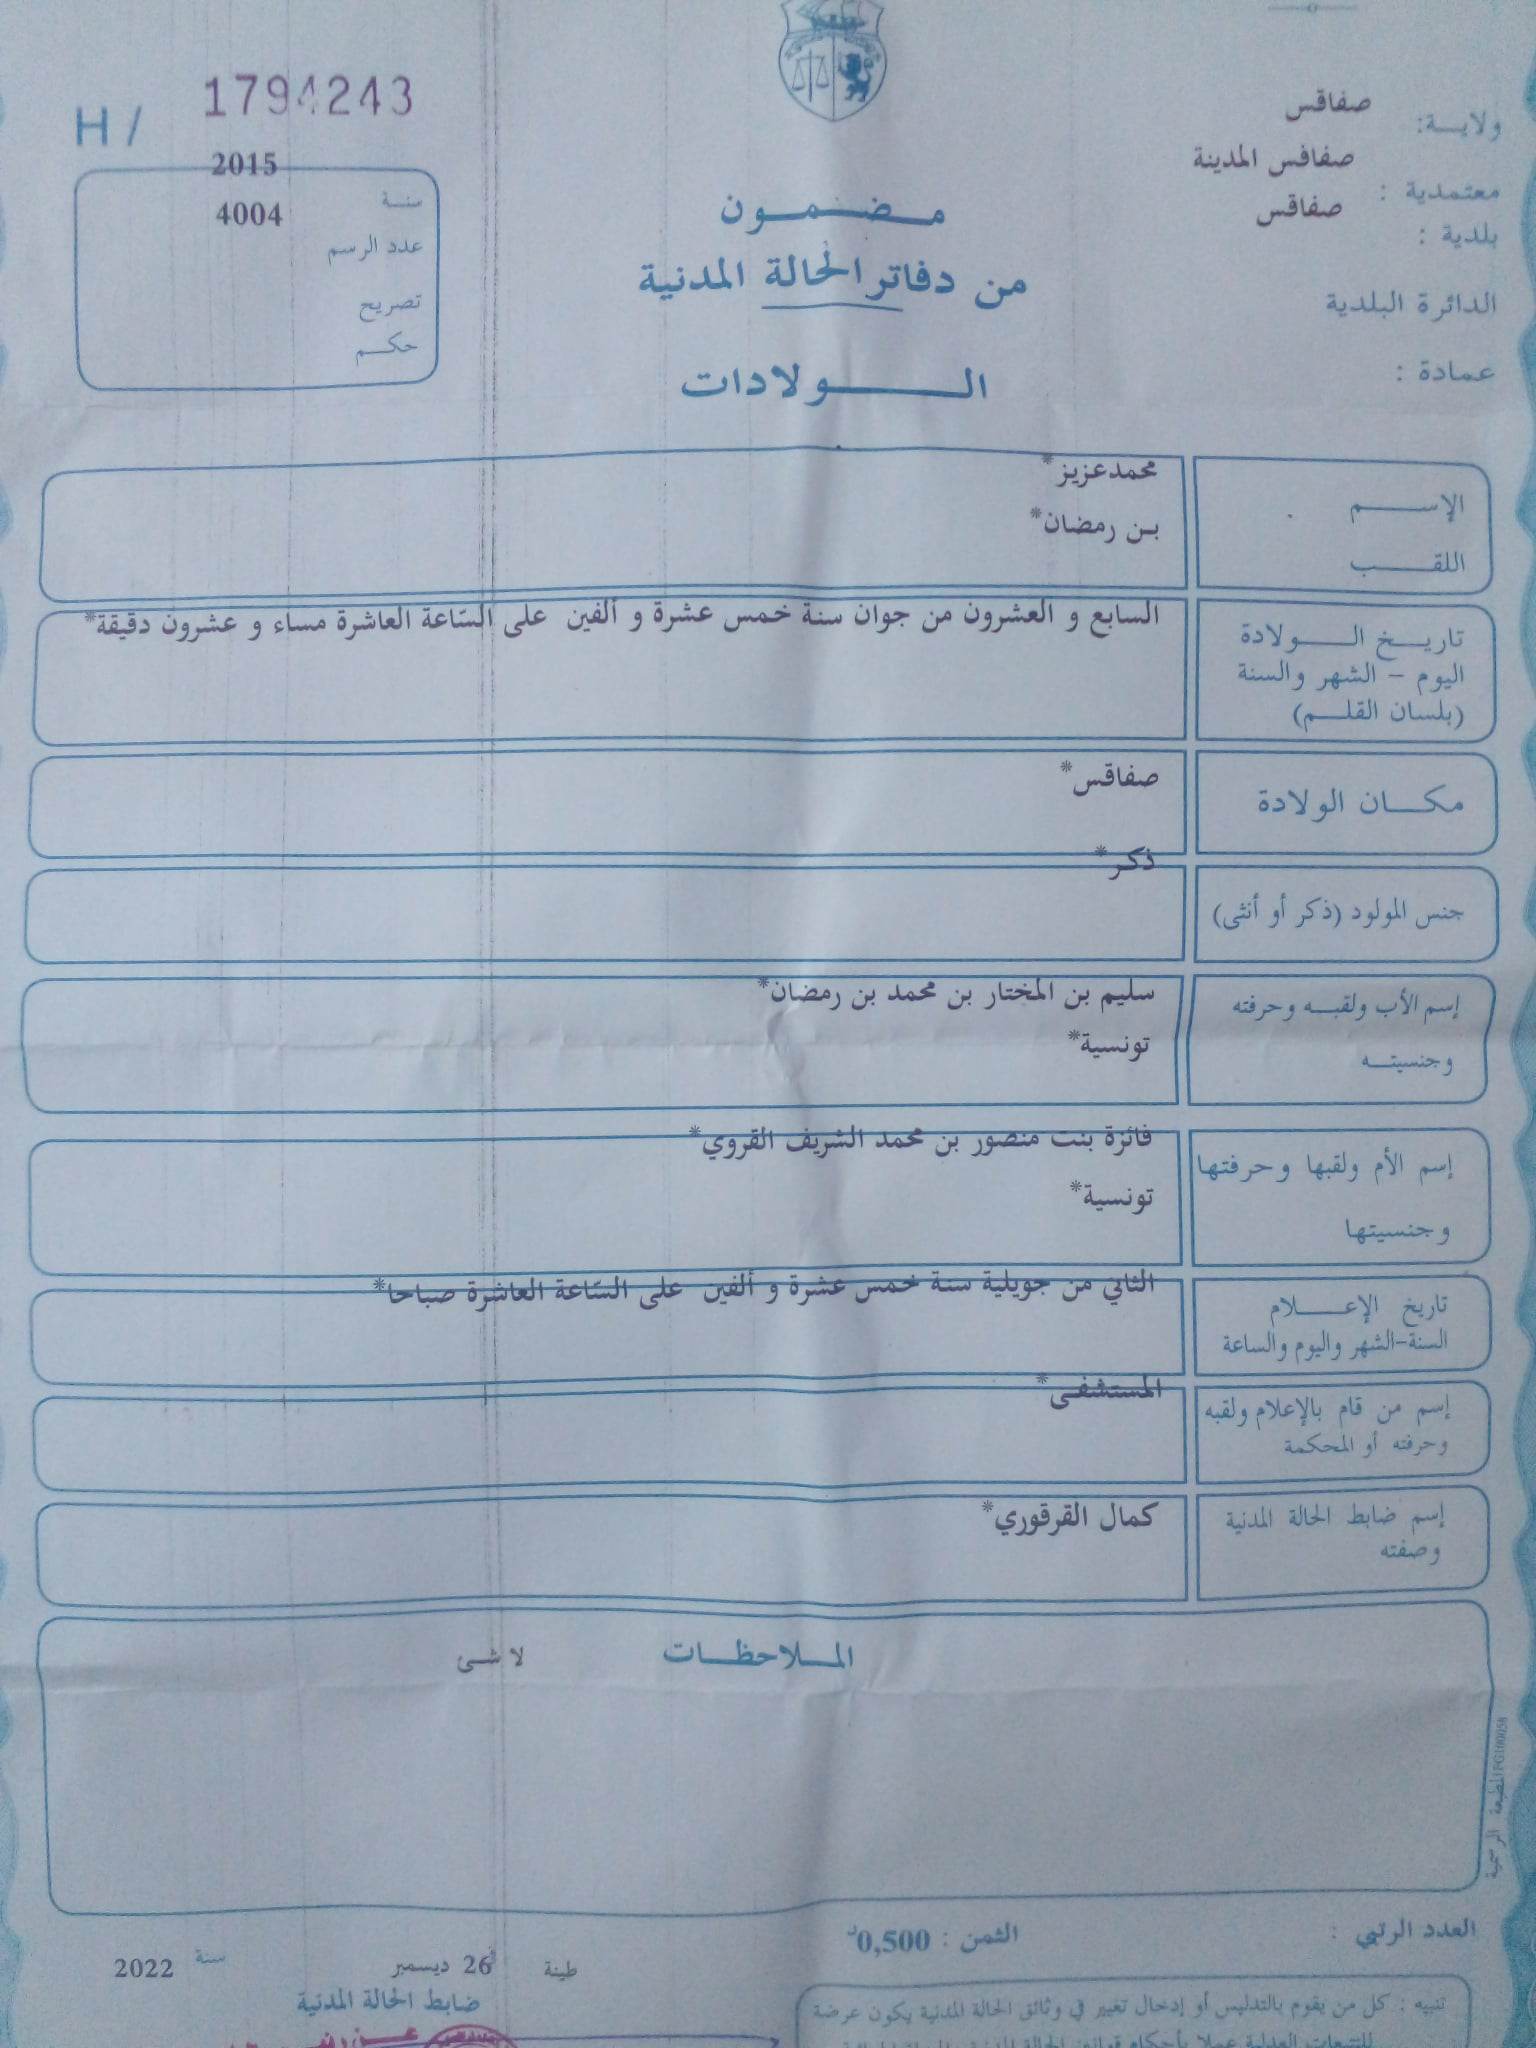 ولاية: صفاقس
معتمدية: صفاقس المدينة
بلدية: صفاقس
الدائرة البلدية
عمادة:
H / 1794243
2015
سنة
4004
عدد الرسم
تصريح
حكم
مضمون
من دفاتر الحالة المدنية
الولادات
الإسم محمدعزيز*
اللقب بن رمضان*
تاريخ الولادة
اليوم - الشهر والسنة
(بلسان القلم)
السابع و العشرون من جوان سنة خمس عشرة و ألفين على السّاعة العاشرة مساء و عشرون دقيقة*
مكان الولادة صفاقس*
جنس المولود (ذكر أو أنثى) ذكر*
إسم الأب ولقبه وحرفته
وجنسيته
سليم بن المختار بن محمد بن رمضان*
تونسية*
إسم الأم ولقبها وحرفتها
وجنسيتها
فائزة بنت منصور بن محمد الشريف القروي*
تونسية*
تاريخ الإعلام
السنة-الشهر واليوم والساعة
الثاني من جويلية سنة خمس عشرة و ألفين على السّاعة العاشرة صباحا*
إسم من قام بالإعلام ولقبه
وحرفته أو المحكمة
المستشفى*
إسم ضابط الحالة المدنية
وصفته
كمال القرقوري*
الملاحظات لا شى
المطبعة الرسمية
العدد الرتبي :
الثمن : 0,500د
طينة 26 ديسمبر سنة 2022
ضابط الحالة المدنية
تنبيه : كل من يقوم بالتدليس أو إدخال تغيير في وثائق الحالة المدنية يكون عرضة